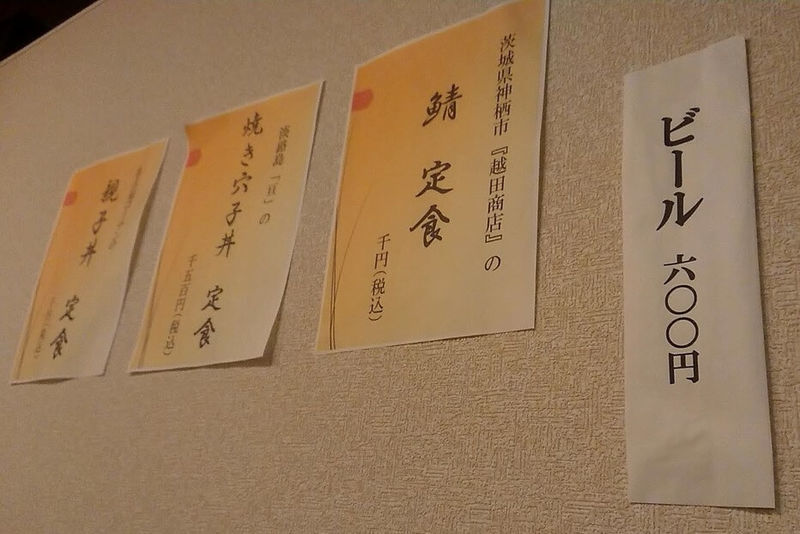 ビール 六〇〇円
茨城県神栖市『越田商店』の
鯖 定食
千円(税込)
淡路島「亘」の
焼き穴子丼 定食
千五百円(税込)
親子丼 定食